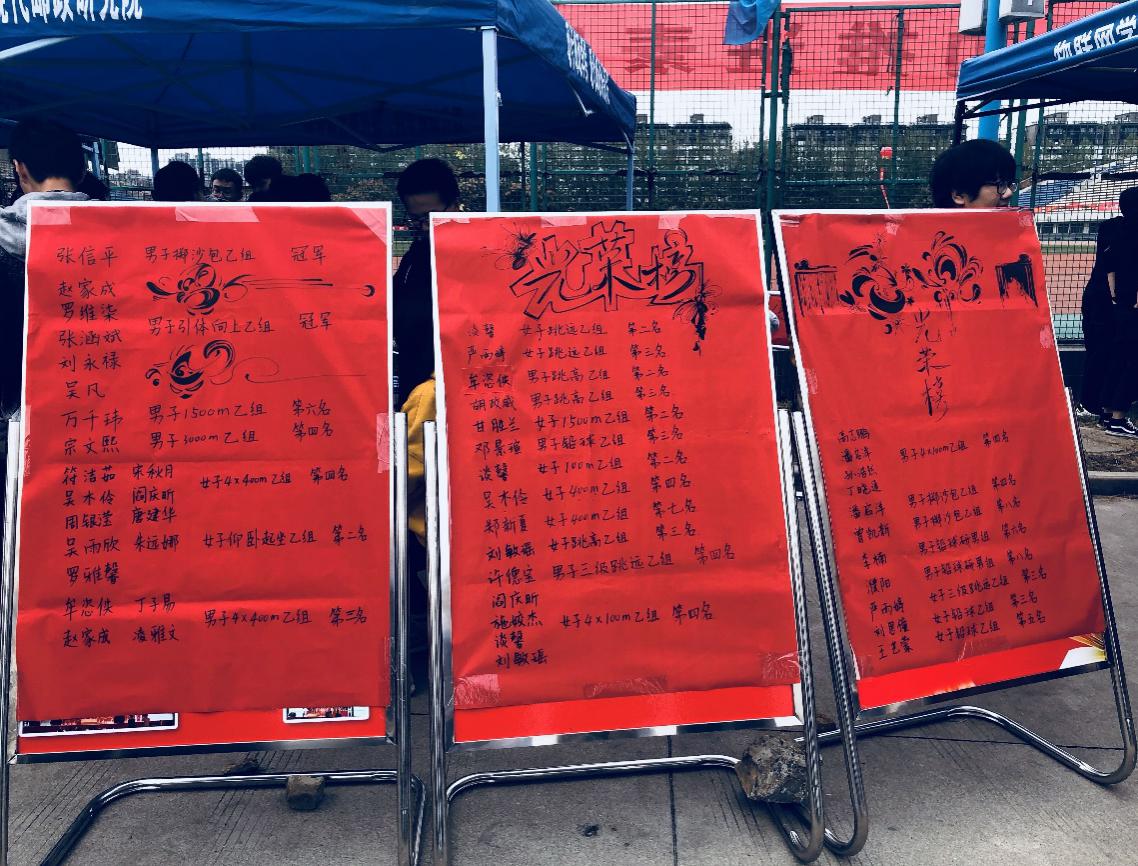 现代邮政研究院
物联网学
张信平 男子掷沙包乙组 冠军
赵家成
罗维柒
张涵斌 男子引体向上乙组 冠军
刘永禄
吴凡
万千玮 男子1500m乙组 第六名
宗文熙 男子3000m乙组 第四名
符洁茹 宋秋月
吴木伶 阎庆昕 女子4x400m乙组 第四名
周银滢 唐建华
吴雨欣 朱远娜 女子仰卧起坐乙组 第二名
罗雅馨
牟恣佚 丁子易
赵家成 凌雅文 男子4x400m乙组 第三名
光荣榜
谈馨 女子跳远乙组 第二名
严雨婷 女子跳远乙组 第三名
牟恣佚 男子跳高乙组 第二名
胡政威 男子跳高乙组 第三名
甘胜兰 女子1500m乙组 第二名
邓景瑄 男子铅球乙组 第三名
谈馨 女子100m乙组 第二名
吴木伶 女子400m乙组 第四名
郑新夏 女子400m乙组 第七名
刘敏瑶 女子跳高乙组 第三名
许德宝 男子三级跳远乙组 第四名
阎庆昕
施敏杰 女子4x100m乙组 第四名
谈馨
刘敏瑶
光荣榜
潘若洋 男子4x100m乙组 第四名
丁晓通
潘若洋 男子掷沙包乙组 第四名
曾凯新 男子掷沙包乙组 第八名
李楠 男子铅球研男组 第六名
濮阳 男子铅球研男组 第八名
严雨婷 女子三级跳远乙组 第三名
刘思瞳 女子铅球乙组 第三名
王艺蒙 女子铅球乙组 第五名